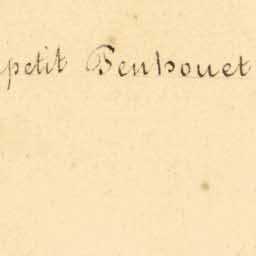 petit Penhouet